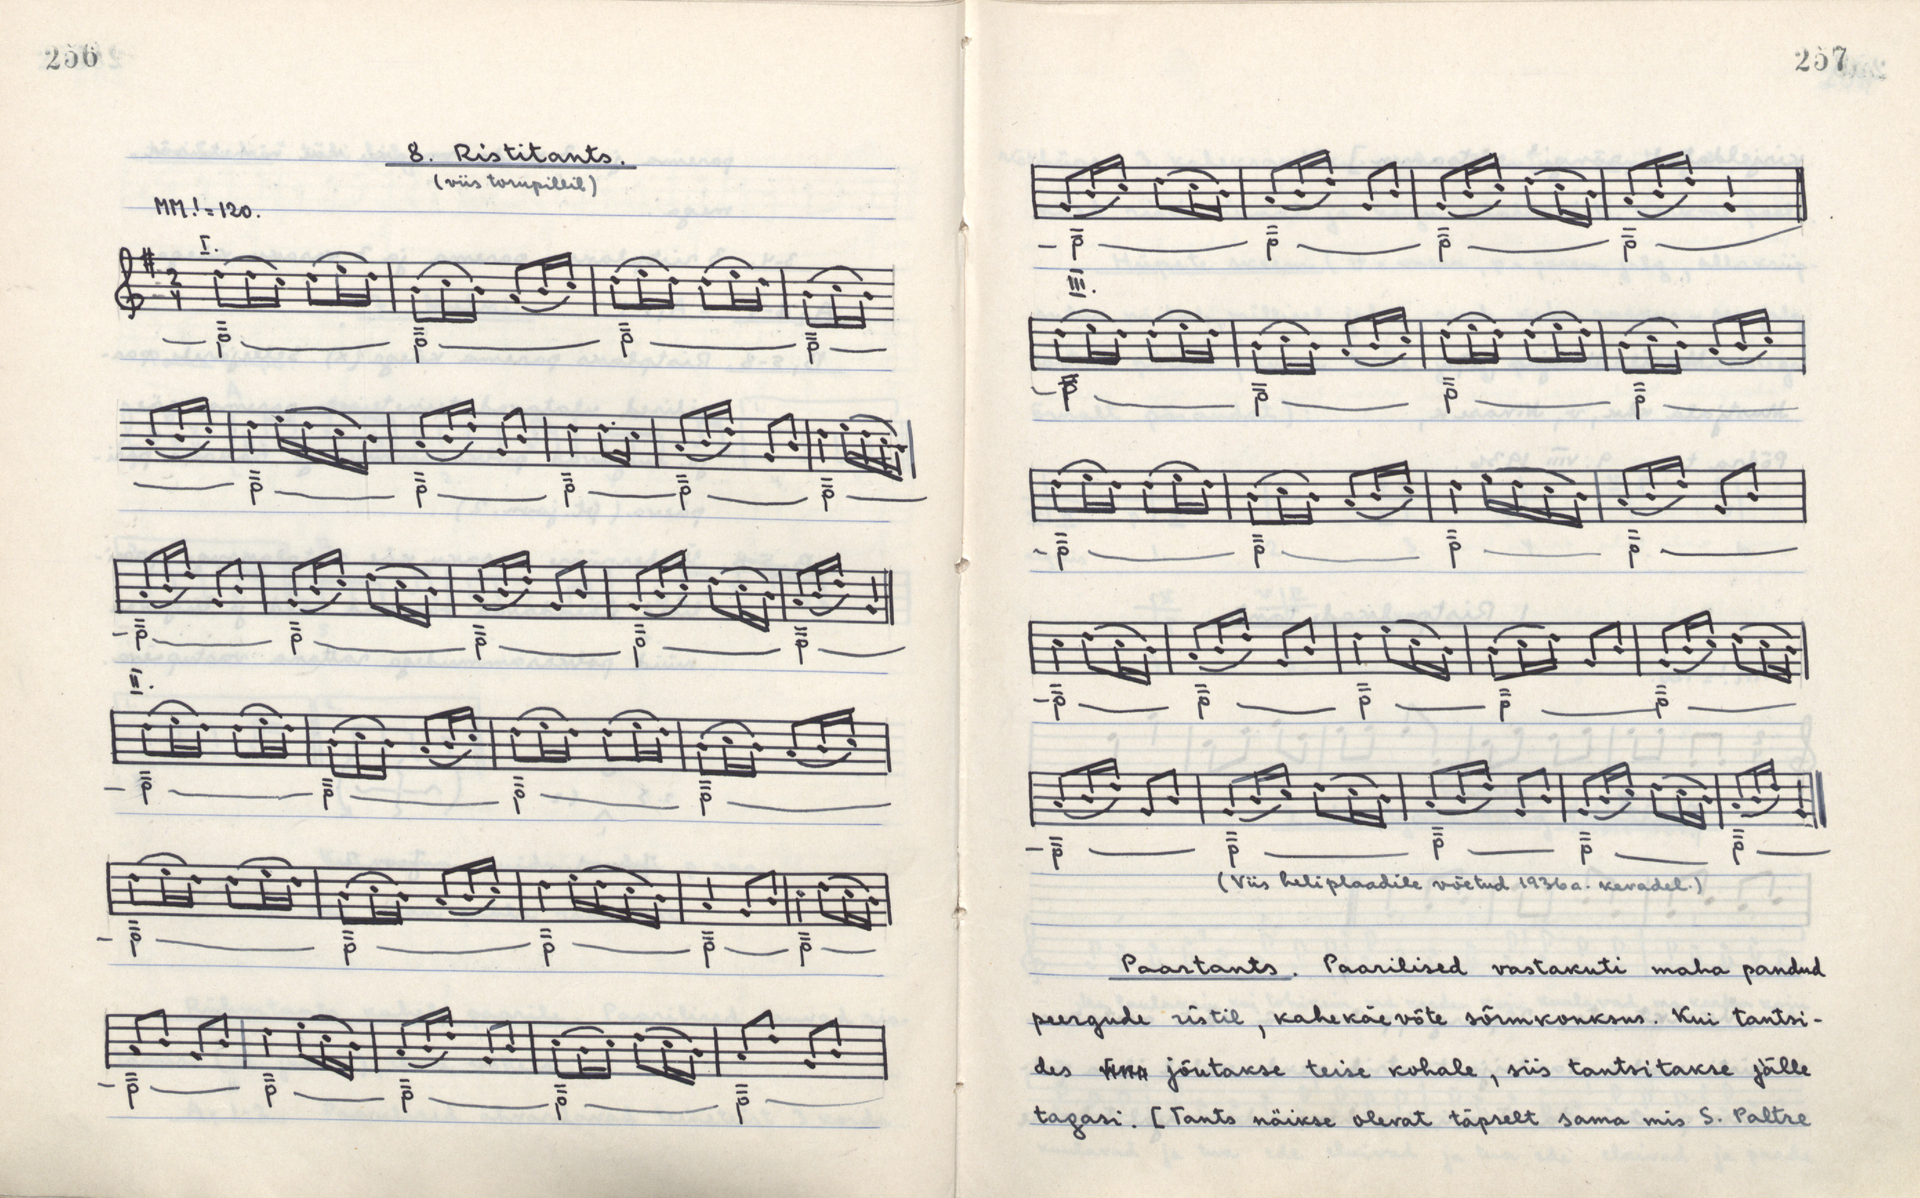 256
8. Ristitants.
(viis torupillil)
MM ♩ = 120.
I.
2
4
II.
257
III.
(Viis heliplaadile võetud 1936 a. kevadel.)
Paartants. Paarilised vastakuti maha pandud
peergude ristil, kahekäe võte sõrmkonksus. Kui tantsi-
des jõutakse teise kohale, siis tantsitakse jälle
tagasi. [Tants näikse olevat täpselt sama mis S. Paltre